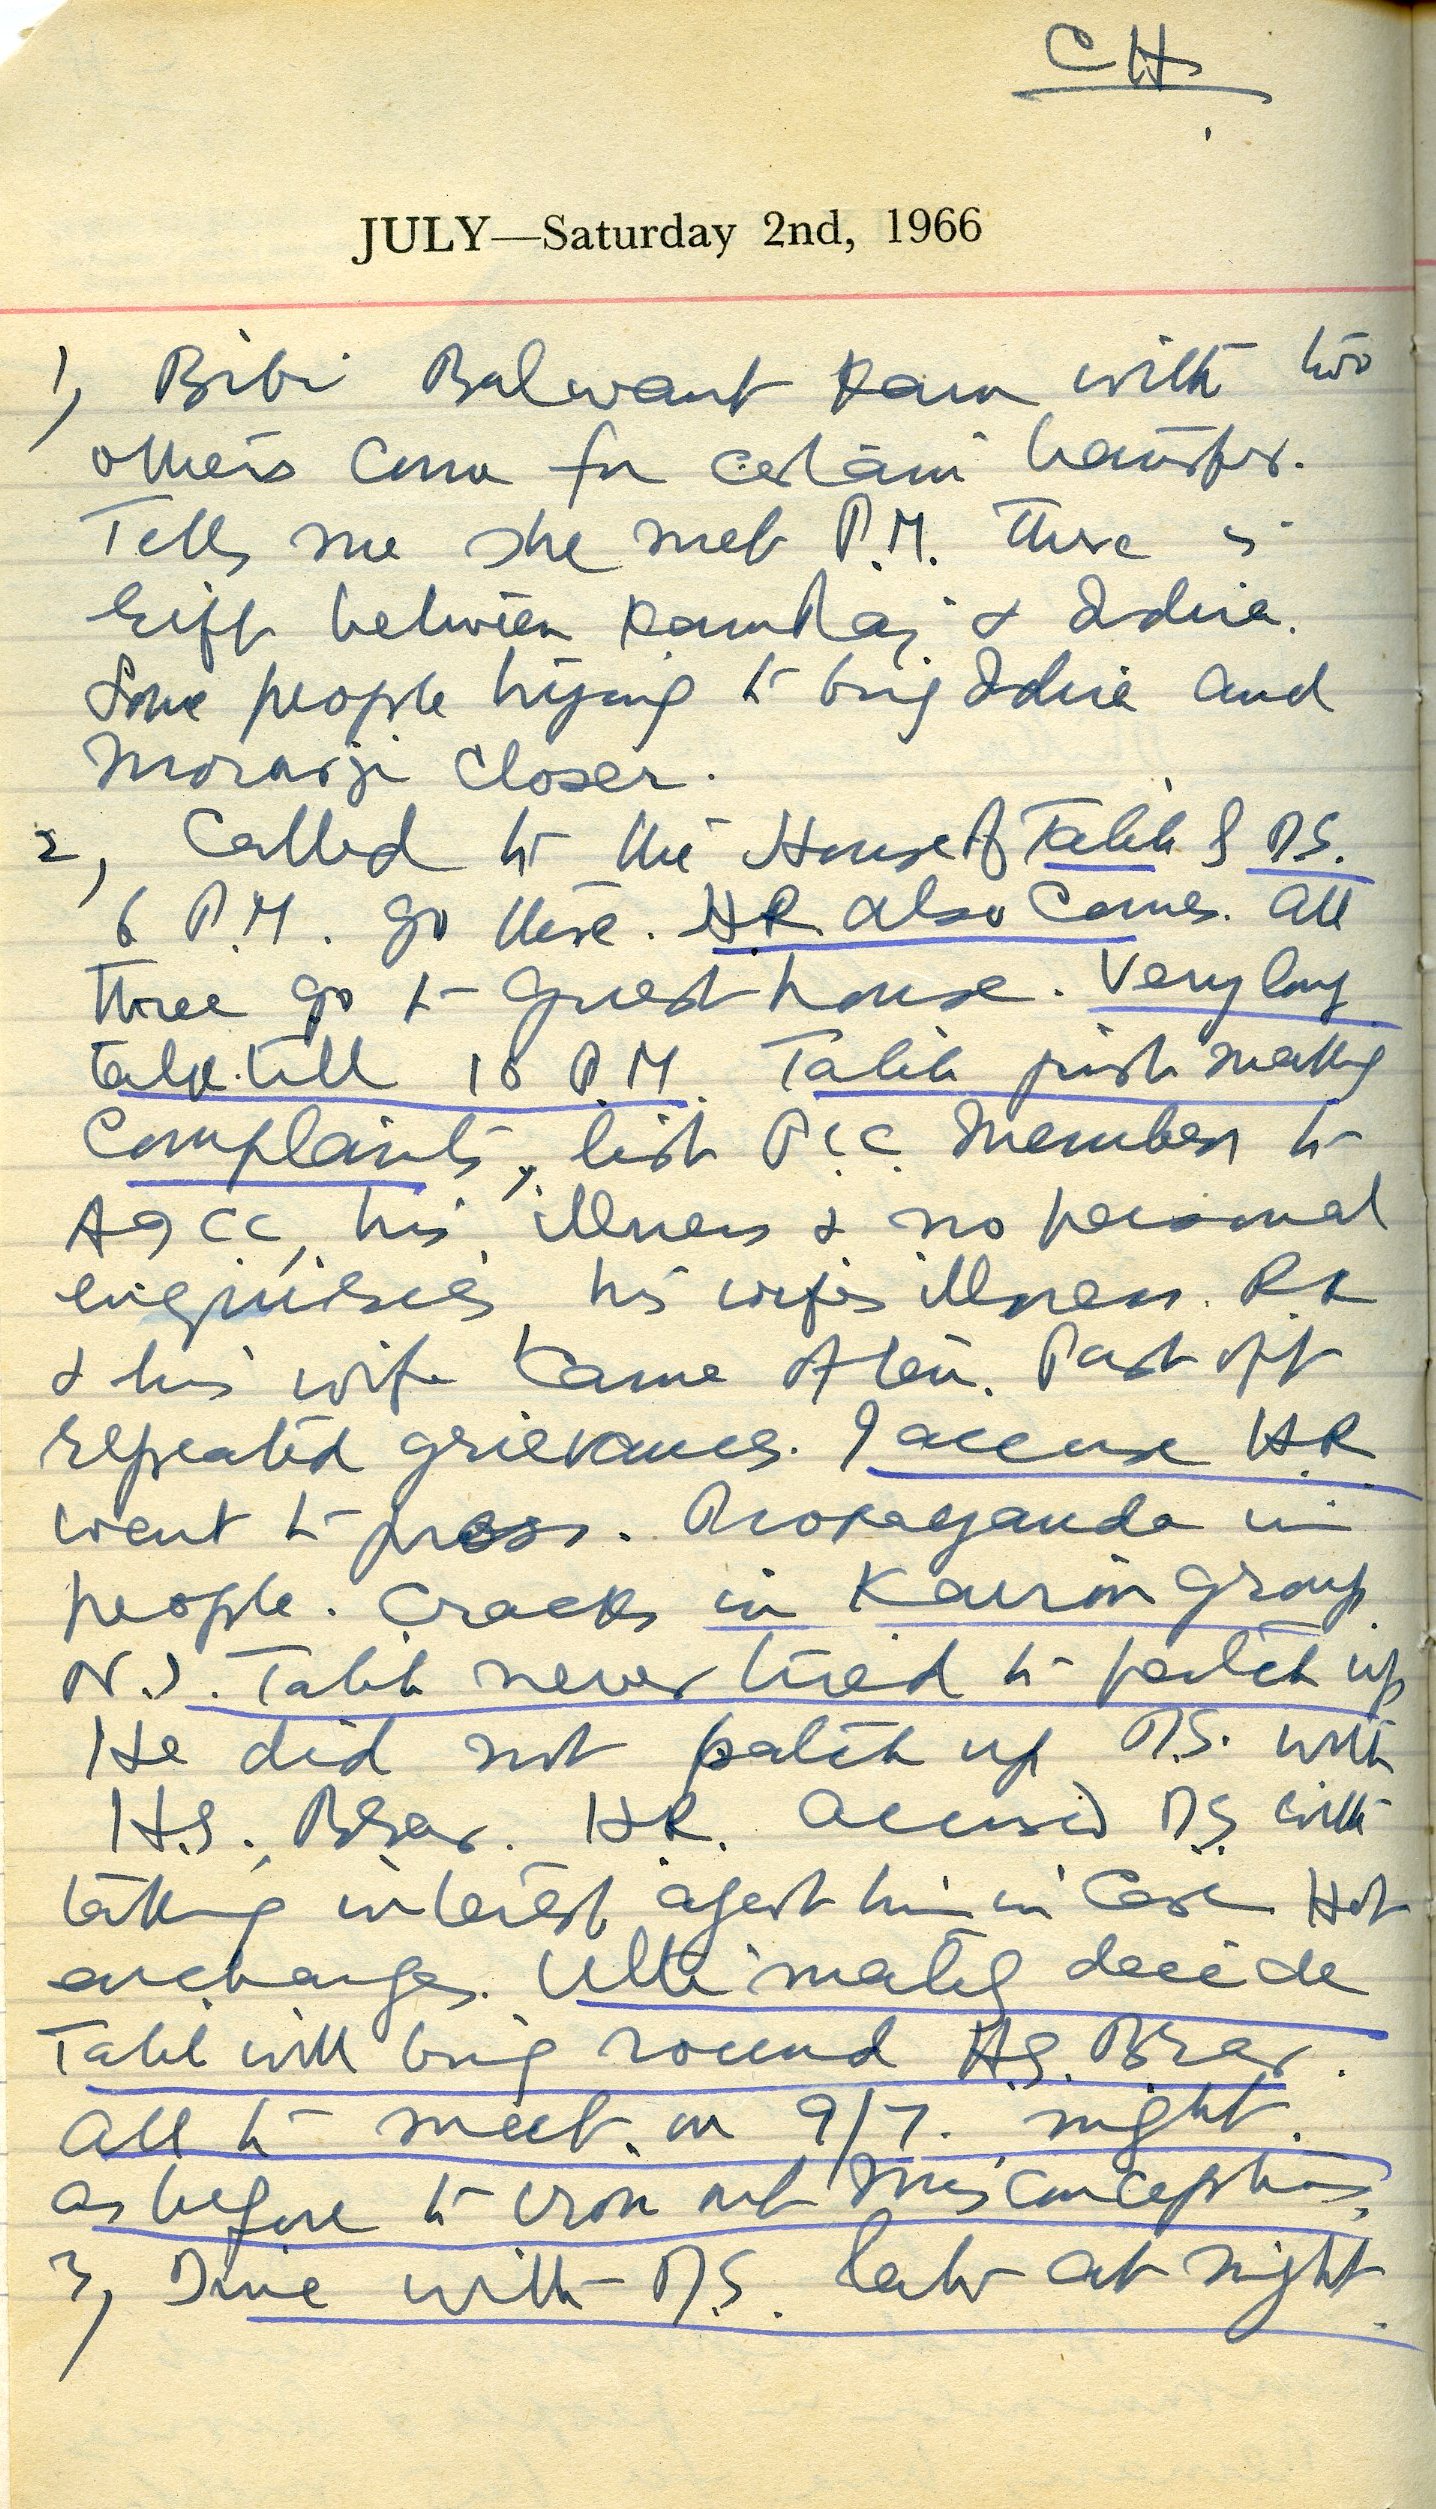 CH
JULY—Saturday 2nd, 1966
1, Bibi Balwant Kaur with two
others come for certain transfer.
Tells me she met P.M. There is
riff between KamRaj & Indira.
Some people trying to bring Indira and
Morarji closer.
2, Called to the House of Talib & D.S.
6 P.M. go there. H.R. also comes. All
three go to guest house. Very long
talk till 10 P.M. Talib first making
complaints, list P.C.C. members to
AICC, his illness & no personal
enquiries his wife's illness. R.K
& his wife came often. Part off
repeated grievances. I accuse H.R.
went to press. Propaganda in
people. Cracks in Kairon group.
Talib never tried to patch up
He did not patch up D.S. with
H.S. Brar. H.R. accused D.S. with
taking interest agest him in case Hot
exchanges. Ultimately decide
Talib will bring round H.S. Brar.
All to meet on 9/7. night.
as before to iron out misconceptions.
3, Dine with D.S. late at night.